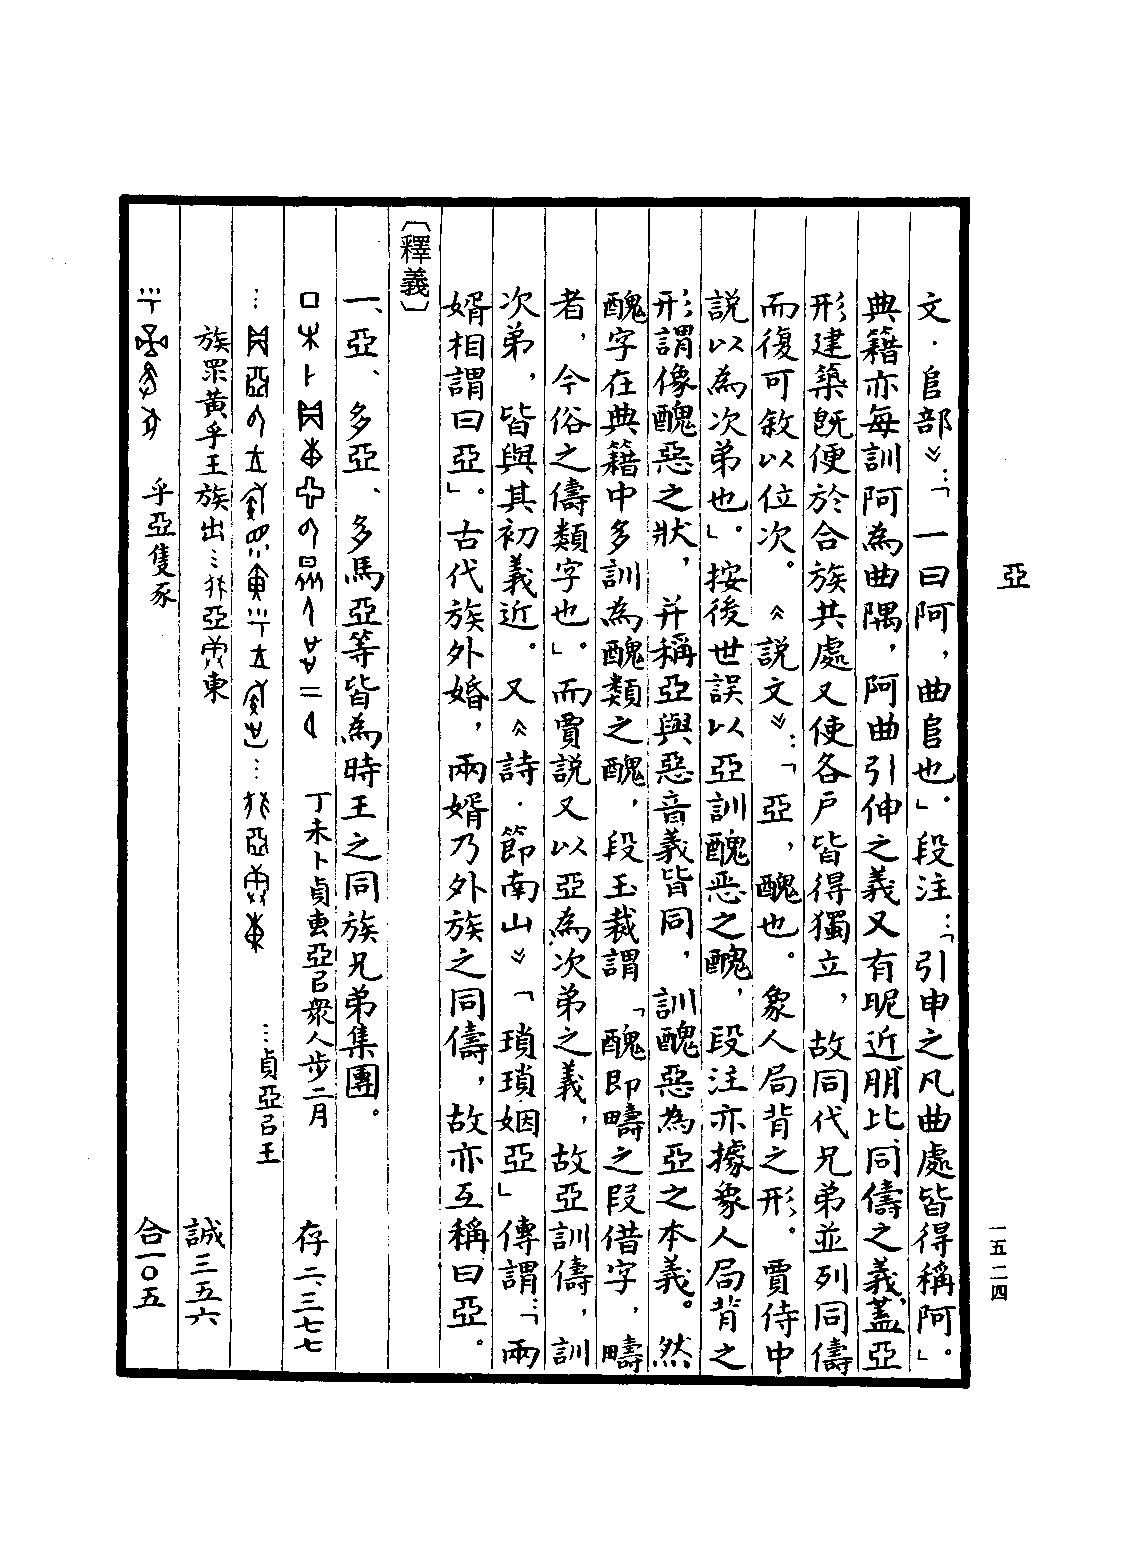 亞
文·𨸏部》：「一曰阿，曲𨸏也」，段注：「引申之凡曲處皆得稱阿」。
典籍亦每訓阿為曲隅，阿曲引伸之義又有昵近朋比、同儔之義，蓋亞
形建築既便於合族共處又使各戶皆得獨立，故同代兄弟並列同儔
而復可敘以位次。《說文》：「亞，醜也。象人局背之形。賈侍中
說以為次弟也」。按後世誤以亞訓醜惡之醜，段注亦據象人局背之
形謂像醜惡之狀，并稱亞與惡音義皆同，訓醜惡為亞之本義。然
醜字在典籍中多訓為醜類之醜，段玉裁謂「醜即疇之叚借字，疇
者，今俗之儔類字也」。而賈說又以亞為次弟之義，故亞訓儔，訓
次弟，皆與其初義近。又《詩·節南山》「瑣瑣姻亞」傳謂：「兩
婿相謂曰亞」。古代族外婚，兩婿乃外族之同儔，故亦互稱曰亞。
〔釋義〕
一、亞、多亞、多馬亞等皆為時王之同族兄弟集團。
丁未卜貞叀亞㠯衆人步二月 存二、三七七
…貞亞㠯王
族眔黃乎王族出…亞東 誠三五六
乎亞隻豕 合一〇五
一五二四